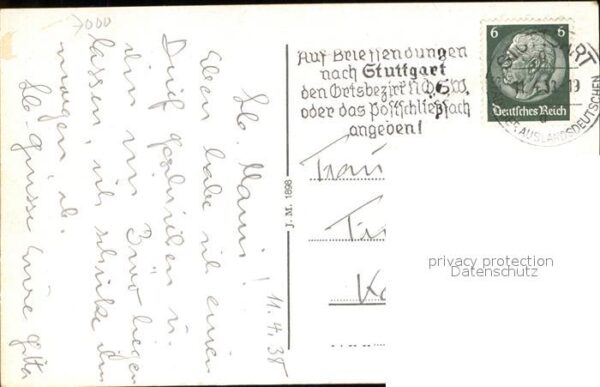 7000
11.4.38
Lb. Mami!
Eben habe ich einen
Brief geschrieben u.
ihn im Büro liegen
lassen, ich schicke ihn
morgen ab.
Lb. Grüsse Eure Gitta
J. M. 1898
Auf Briefsendungen
nach Stuttgart
den Ortsbezirk N,O,S,W,
oder das Postschließfach
angeben!
6 6
Deutsches Reich
STUTTGART
AUSLANDSDEUTSCHEN
privacy protection
Datenschutz